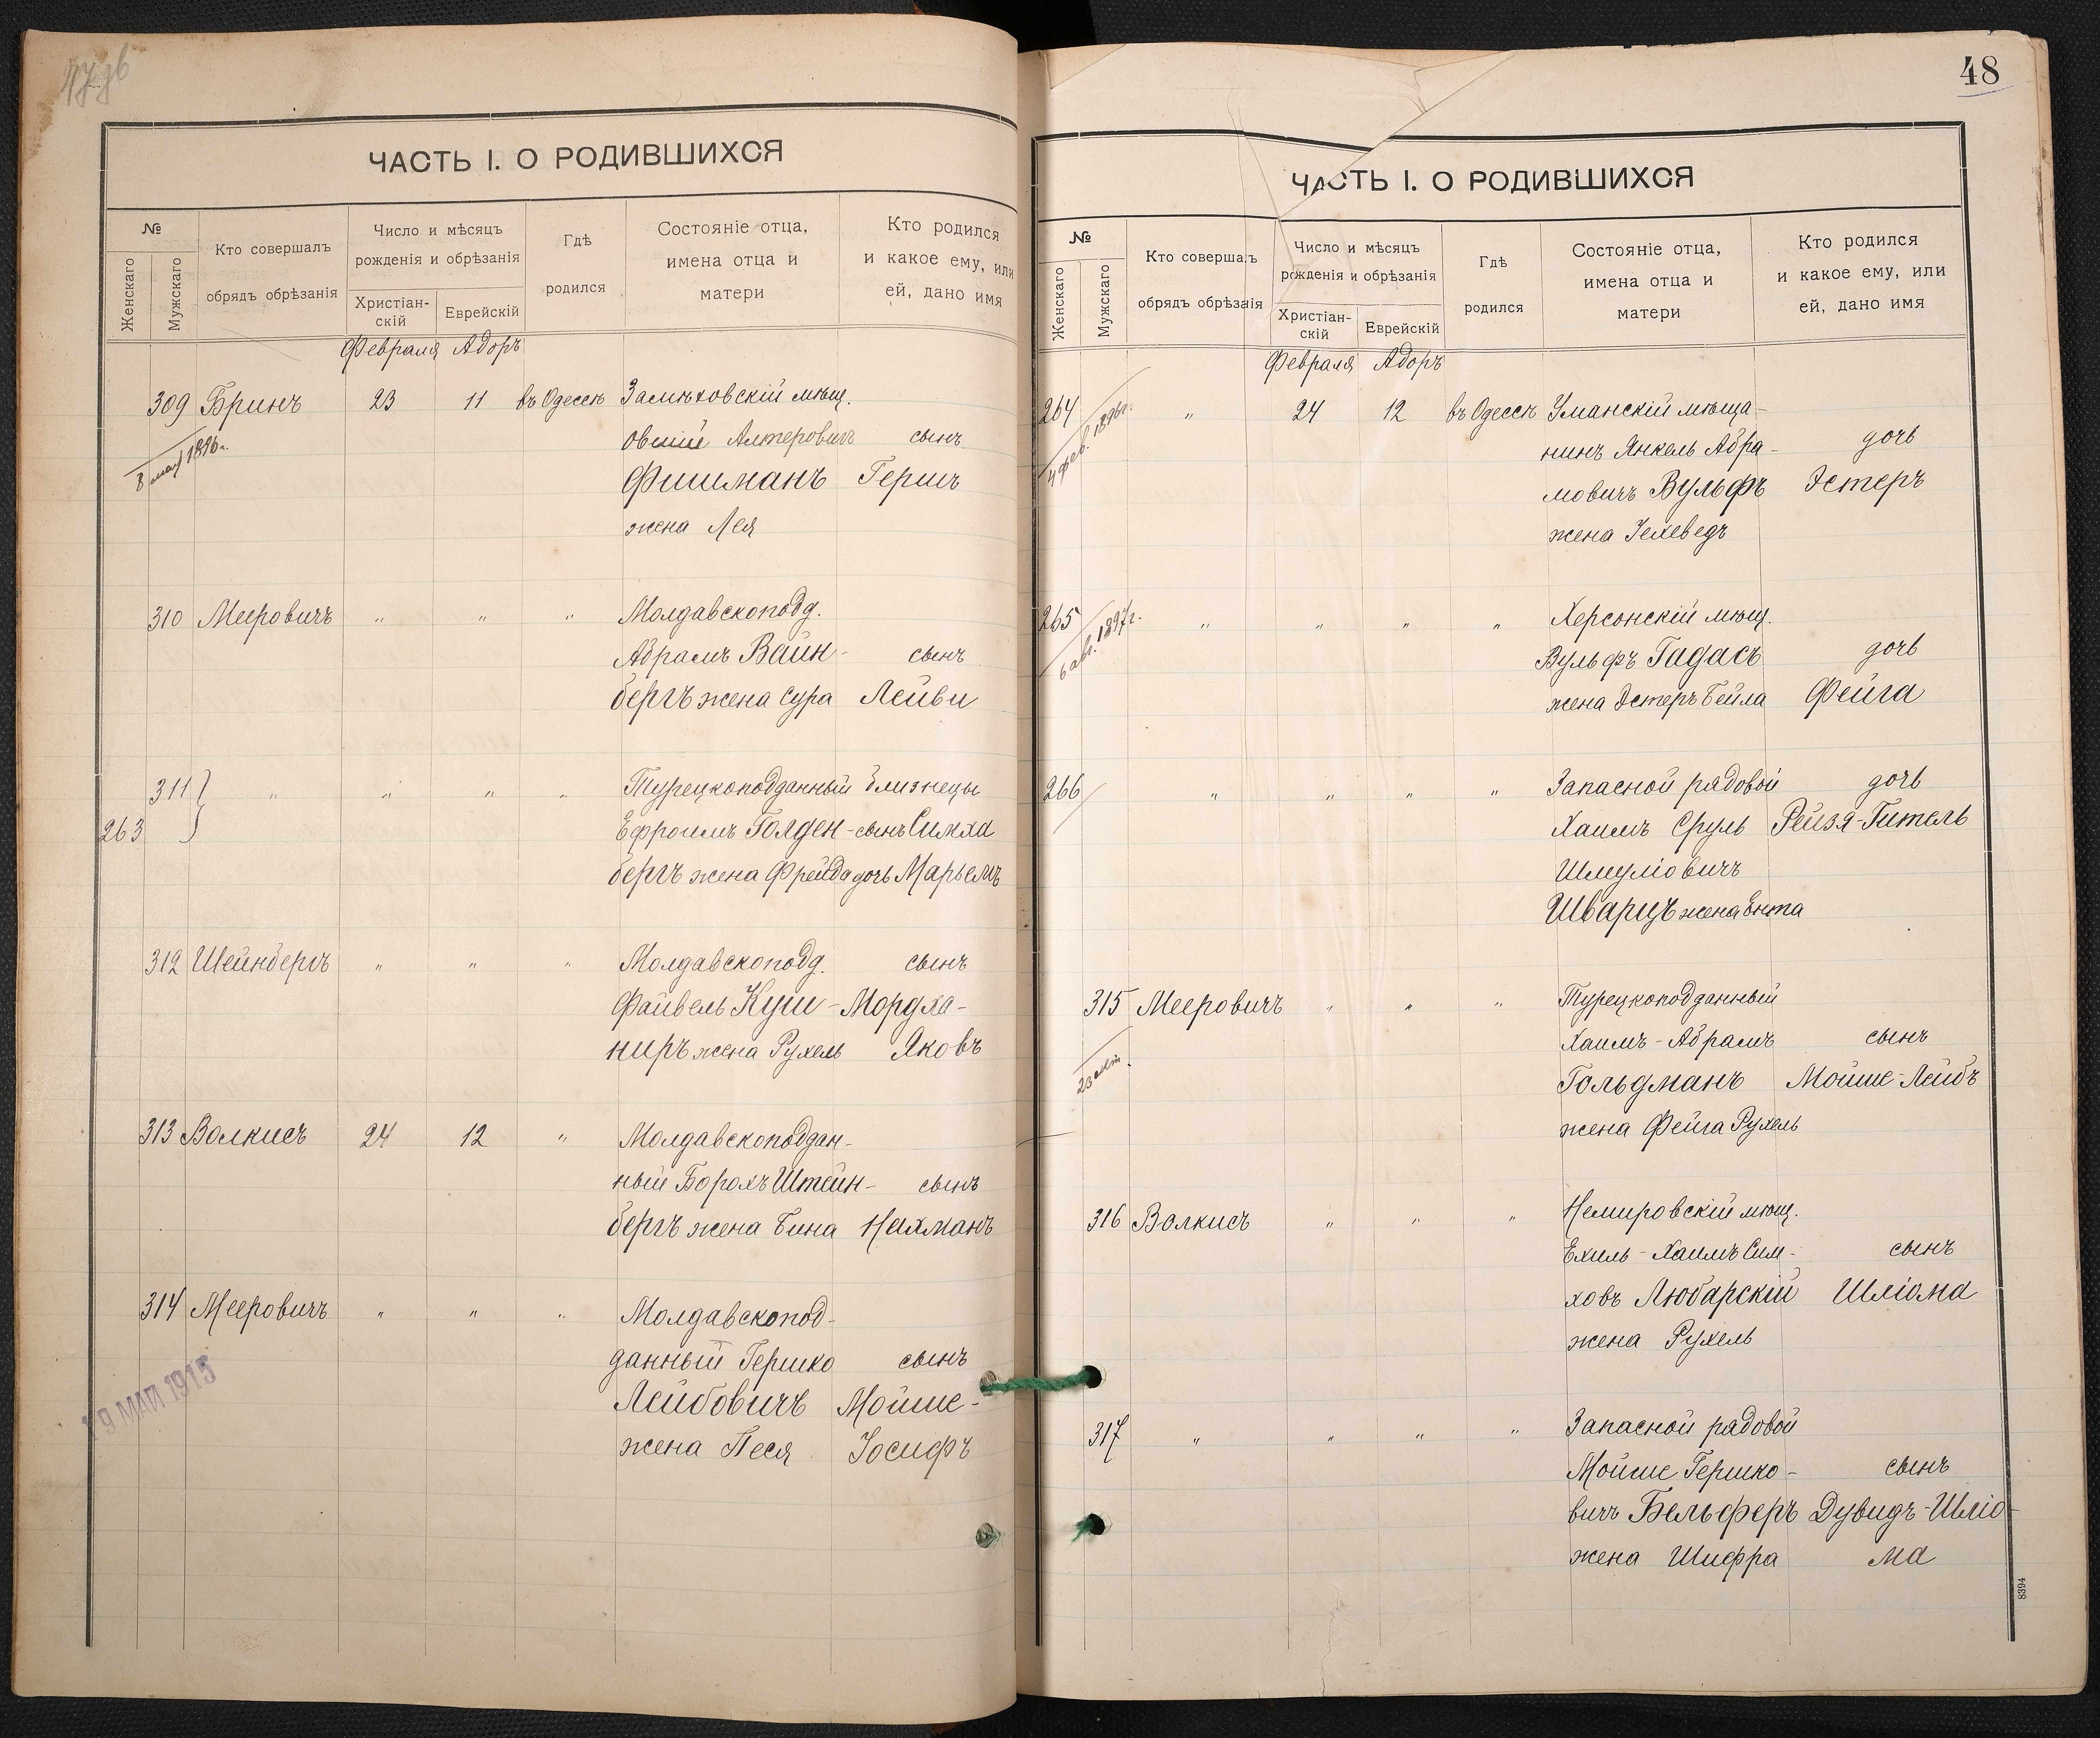 ЧАСТЬ I. О РОДИВШИХСЯ
№
Женскаго
Мужскаго
Кто совершалъ
обрядъ обрѣзанія
Число и мѣсяцъ
рожденія и обрѣзанія
Христіан-
скій
Еврейскій
Гдѣ
родился
Состояніе отца,
имена отца и
матери
Кто родился
и какое ему, или
ей, дано имя
Февраля Адоръ
309 Бринъ 23 11 въ Одессѣ Замѣховскій мѣщ.
Овшій Алтеровичъ сынъ
8 мая 1896 г.
Фишманъ Гершъ
жена Лея
310 Мееровичъ " " " Молдавскоподд.
Абрамъ Вайн- сынъ
бергъ жена Сура Лейви
311 " " " " Турецкоподданный близнецы
263 Ефроимъ Голден- сынъ Симха
бергъ жена Фрейда дочь Марьемъ
312 Шейнбергъ " " " Молдавскоподд. сынъ
Файвель Куш- Мордха-
ниръ жена Рухель Яковъ
313 Волкисъ 24 12 " Молдавскоподдан-
ный Борохъ Штейн- сынъ
бергъ жена Бина Нахманъ
314 Мееровичъ " " " Молдавскопод-
данный Гершко сынъ
Лейбовичъ Мойше-
жена Песя Іосифъ
19 МАЙ 1915
48
ЧАСТЬ I. О РОДИВШИХСЯ
№
Женскаго
Мужскаго
Кто совершалъ
обрядъ обрѣзанія
Число и мѣсяцъ
рожденія и обрѣзанія
Христіан-
скій
Еврейскій
Гдѣ
родился
Состояніе отца,
имена отца и
матери
Кто родился
и какое ему, или
ей, дано имя
Февраля Адоръ
264 " 24 12 въ Одессѣ Уманскій мѣща-
4 фев. 1896 г.
нинъ Янкель Абра- дочь
мовичъ Вульфъ Эстеръ
жена Іехеведъ
265 " " " " Херсонскій мѣщ.
6 авг. 1897 г.
Вульфъ Гадасъ дочь
жена Эстеръ Бейла Фейга
266 " " " " Запасной рядовой дочь
Хаимъ Сруль Рейзя-Гитель
Шмуліовичъ
Шварцъ жена Ента
315 Мееровичъ " " " Турецкоподданный
Хаимъ-Абрамъ сынъ
Гольдманъ Мойше-Лейбъ
жена Фейга Рухель
316 Волкисъ " " " Немировскій мѣщ.
Ехиль-Хаимъ Сим- сынъ
ховъ Любарскій Шліома
жена Рухель
317 " " " " Запасной рядовой
Мойше Гершко- сынъ
вичъ Бельферъ Дувидъ-Шліо-
жена Шифра ма
8394